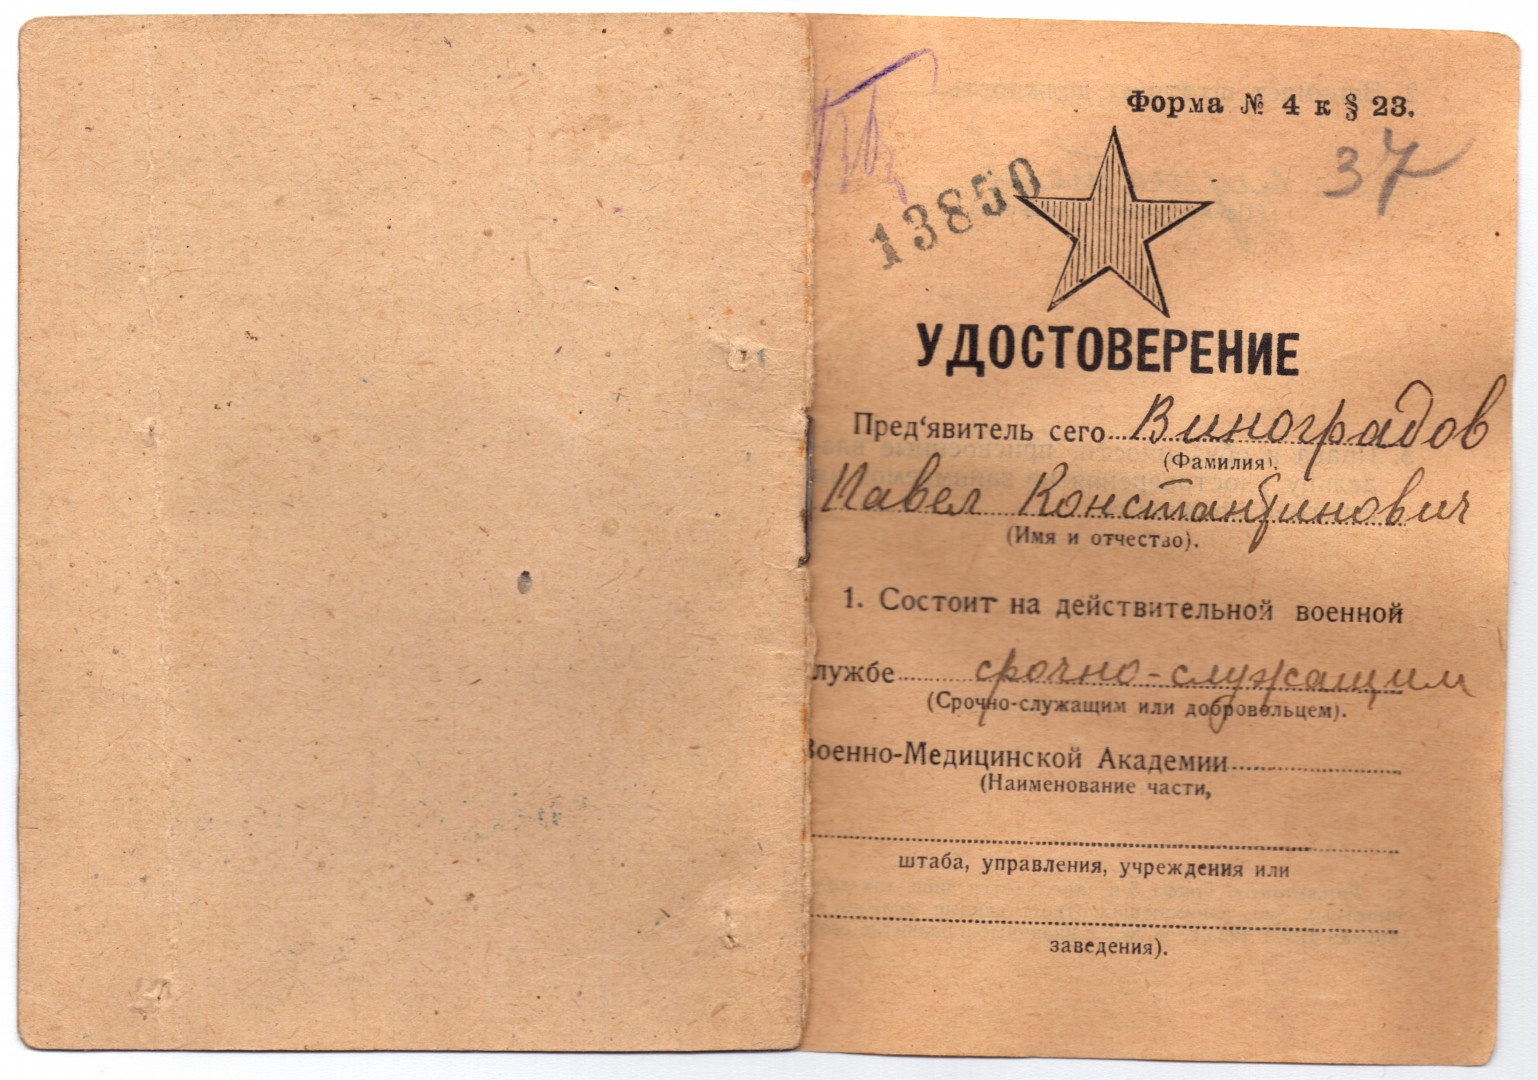 Форма № 4 к § 23.
37
13850
УДОСТОВЕРЕНИЕ
Пред‘явитель сего Виноградов
(Фамилия).
Павел Константинович
(Имя и отчество).
1. Состоит на действительной военной
лужбе срочно-служащим
(Срочно-служащим или добровольцем).
Военно-Медицинской Академии
(Наименование части,
штаба, управления, учреждения или
заведения).